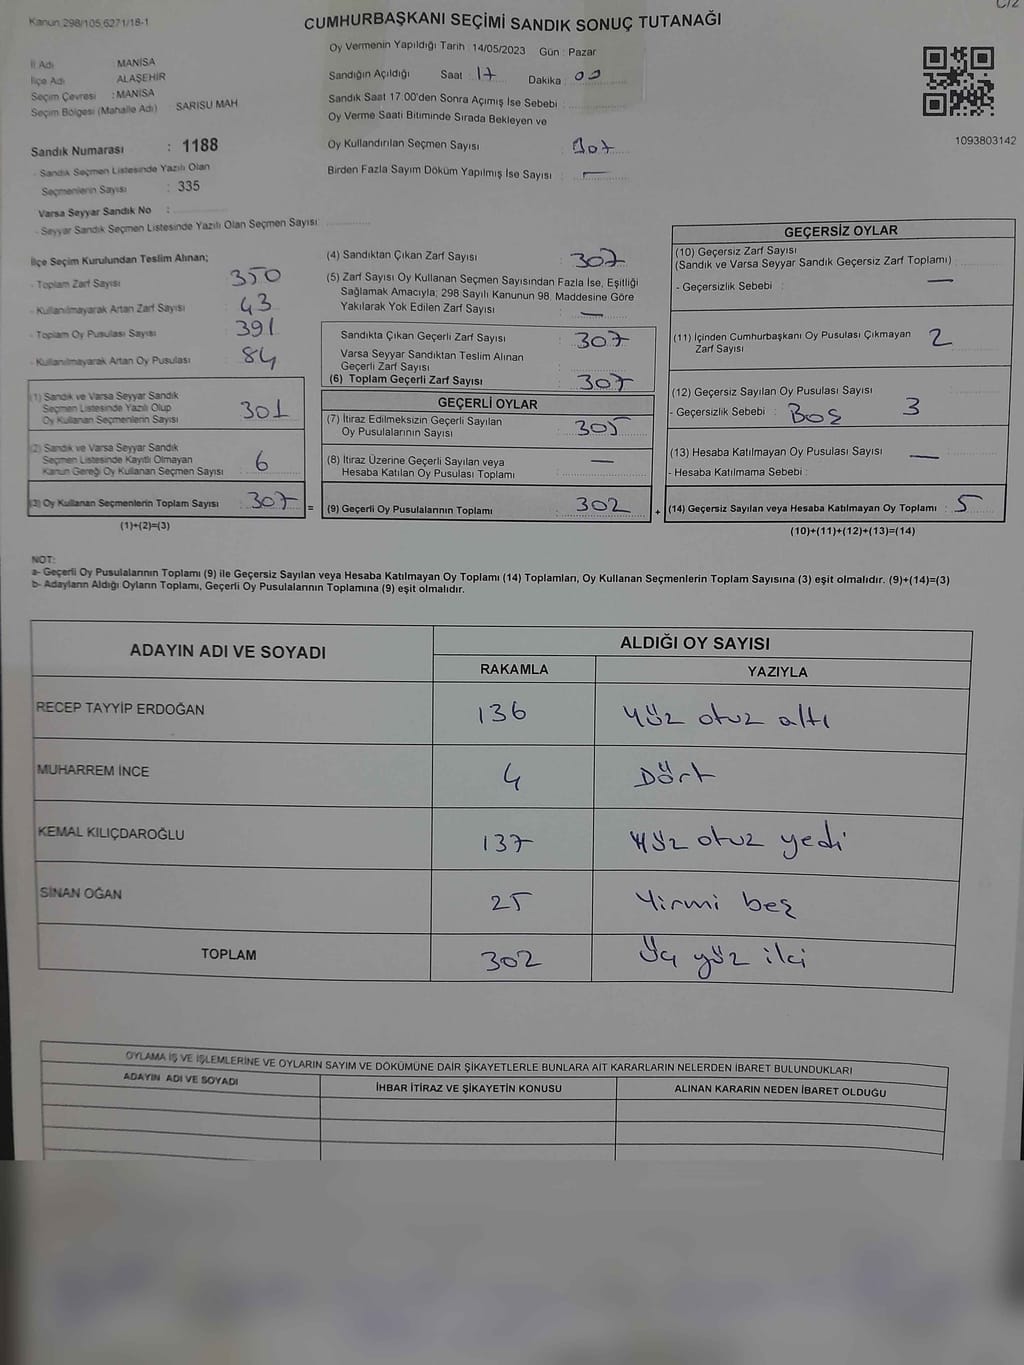 C/2
Kanun 298/105,6271/18-1
CUMHURBAŞKANI SEÇİMİ SANDIK SONUÇ TUTANAĞI
Oy Vermenin Yapıldığı Tarih : 14/05/2023 Gün : Pazar
İl Adı MANİSA
İlçe Adı ALAŞEHİR
Seçim Çevresi : MANİSA
Seçim Bölgesi (Mahalle Adı) : SARISU MAH
Sandığın Açıldığı Saat : 17 Dakika : 00
Sandık Saat 17:00'den Sonra Açımış İse Sebebi :
Oy Verme Saati Bitiminde Sırada Bekleyen ve
Oy Kullandırılan Seçmen Sayısı : 307
Birden Fazla Sayım Döküm Yapılmış İse Sayısı : —
1093803142
Sandık Numarası : 1188
- Sandık Seçmen Listesinde Yazılı Olan
Seçmenlerin Sayısı : 335
Varsa Seyyar Sandık No :
- Seyyar Sandık Seçmen Listesinde Yazılı Olan Seçmen Sayısı:
İlçe Seçim Kurulundan Teslim Alınan;
- Toplam Zarf Sayısı : 350
- Kullanılmayarak Artan Zarf Sayısı : 43
- Toplam Oy Pusulası Sayısı : 391
- Kullanılmayarak Artan Oy Pusulası : 84
(1) Sandık ve Varsa Seyyar Sandık
Seçmen Listesinde Yazılı Olup
Oy Kullanan Seçmenlerin Sayısı : 301
(2) Sandık ve Varsa Seyyar Sandık
Seçmen Listesinde Kayıtlı Olmayan
Kanun Gereği Oy Kullanan Seçmen Sayısı : 6
(3) Oy Kullanan Seçmenlerin Toplam Sayısı : 307 =
(1)+(2)=(3)
(4) Sandıktan Çıkan Zarf Sayısı : 307
(5) Zarf Sayısı Oy Kullanan Seçmen Sayısından Fazla İse, Eşitliği
Sağlamak Amacıyla, 298 Sayılı Kanunun 98. Maddesine Göre
Yakılarak Yok Edilen Zarf Sayısı : —
Sandıkta Çıkan Geçerli Zarf Sayısı : 307
Varsa Seyyar Sandıktan Teslim Alınan
Geçerli Zarf Sayısı :
(6) Toplam Geçerli Zarf Sayısı : 307
GEÇERLİ OYLAR
(7) İtiraz Edilmeksizin Geçerli Sayılan
Oy Pusulalarının Sayısı : 305
(8) İtiraz Üzerine Geçerli Sayılan veya
Hesaba Katılan Oy Pusulası Toplamı : —
(9) Geçerli Oy Pusulalarının Toplamı : 302 +
GEÇERSİZ OYLAR
(10) Geçersiz Zarf Sayısı
(Sandık ve Varsa Seyyar Sandık Geçersiz Zarf Toplamı) :
- Geçersizlik Sebebi : —
(11) İçinden Cumhurbaşkanı Oy Pusulası Çıkmayan
Zarf Sayısı : 2
(12) Geçersiz Sayılan Oy Pusulası Sayısı
- Geçersizlik Sebebi : Boş 3
(13) Hesaba Katılmayan Oy Pusulası Sayısı : —
- Hesaba Katılmama Sebebi :
(14) Geçersiz Sayılan veya Hesaba Katılmayan Oy Toplamı : 5
(10)+(11)+(12)+(13)=(14)
NOT:
a- Geçerli Oy Pusulalarının Toplamı (9) ile Geçersiz Sayılan veya Hesaba Katılmayan Oy Toplamı (14) Toplamları, Oy Kullanan Seçmenlerin Toplam Sayısına (3) eşit olmalıdır. (9)+(14)=(3)
b- Adayların Aldığı Oyların Toplamı, Geçerli Oy Pusulalarının Toplamına (9) eşit olmalıdır.
ADAYIN ADI VE SOYADI
ALDIĞI OY SAYISI
RAKAMLA YAZIYLA
RECEP TAYYİP ERDOĞAN 136 Yüz otuz altı
MUHARREM İNCE 4 Dört
KEMAL KILIÇDAROĞLU 137 Yüz otuz yedi
SİNAN OĞAN 25 Yirmi beş
TOPLAM 302 Üç yüz iki
OYLAMA İŞ VE İŞLEMLERİNE VE OYLARIN SAYIM VE DÖKÜMÜNE DAİR ŞİKAYETLERLE BUNLARA AİT KARARLARIN NELERDEN İBARET BULUNDUKLARI
ADAYIN ADI VE SOYADI İHBAR İTİRAZ VE ŞİKAYETİN KONUSU ALINAN KARARIN NEDEN İBARET OLDUĞU